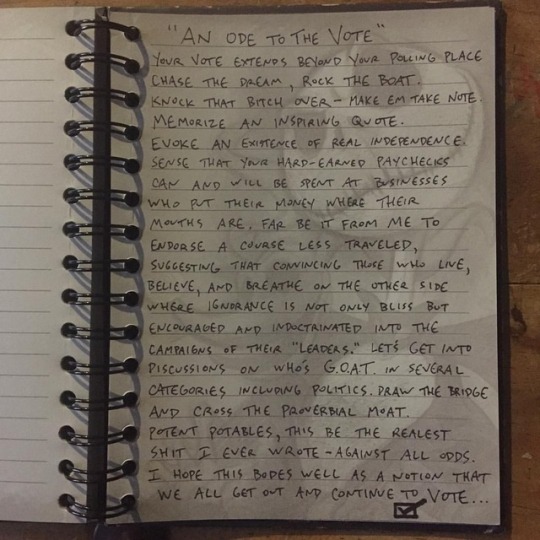 "AN ODE TO THE VOTE"
YOUR VOTE EXTENDS BEYOND YOUR POLLING PLACE
CHASE THE DREAM, ROCK THE BOAT.
KNOCK THAT BITCH OVER - MAKE EM TAKE NOTE.
MEMORIZE AN INSPIRING QUOTE.
EVOKE AN EXISTENCE OF REAL INDEPENDENCE.
SENSE THAT YOUR HARD-EARNED PAYCHECKS
CAN AND WILL BE SPENT AT BUSINESSES
WHO PUT THEIR MONEY WHERE THEIR
MOUTHS ARE. FAR BE IT FROM ME TO
ENDORSE A COURSE LESS TRAVELED,
SUGGESTING THAT CONVINCING THOSE WHO LIVE,
BELIEVE, AND BREATHE ON THE OTHER SIDE
WHERE IGNORANCE IS NOT ONLY BLISS BUT
ENCOURAGED AND INDOCTRINATED INTO THE
CAMPAIGNS OF THEIR "LEADERS." LET'S GET INTO
DISCUSSIONS ON WHO'S G.O.A.T. IN SEVERAL
CATEGORIES INCLUDING POLITICS. DRAW THE BRIDGE
AND CROSS THE PROVERBIAL MOAT.
POTENT POTABLES, THIS BE THE REALEST
SHIT I EVER WROTE - AGAINST ALL ODDS.
I HOPE THIS BODES WELL AS A NOTION THAT
WE ALL GET OUT AND CONTINUE TO VOTE...